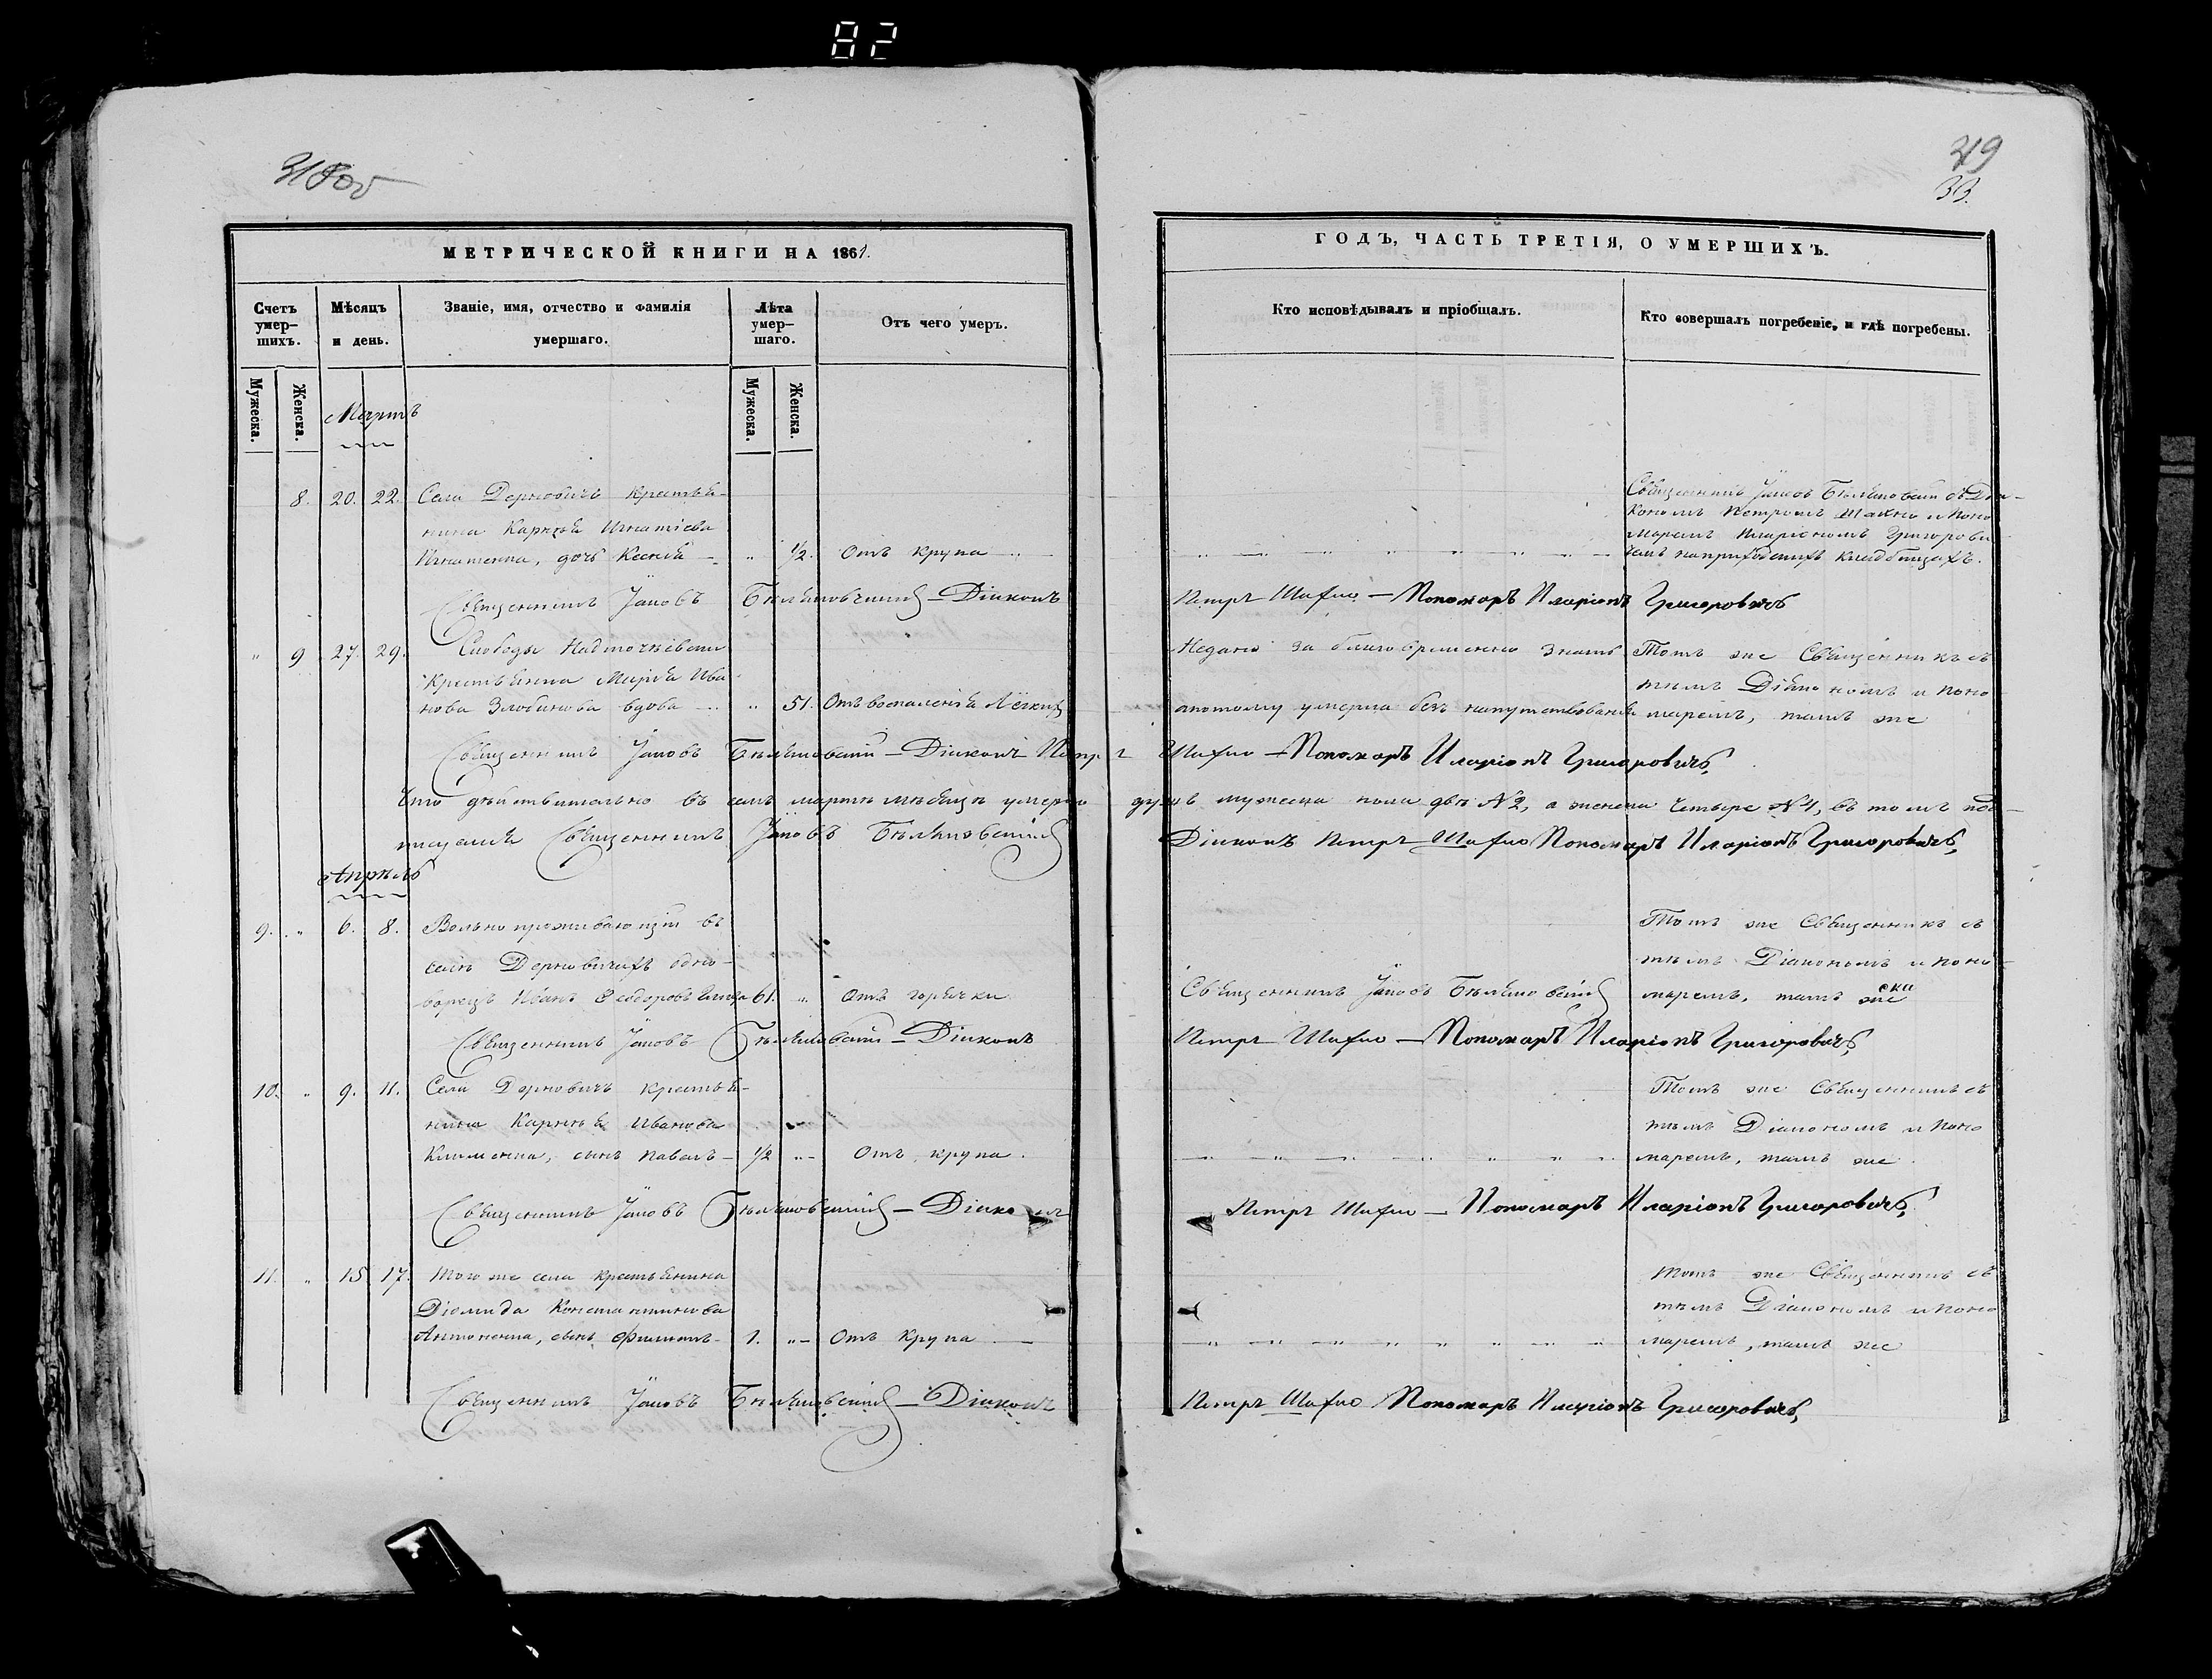 82
318 об
319
33.
МЕТРИЧЕСКОЙ КНИГИ НА 1861.
ГОДЪ, ЧАСТЬ ТРЕТІЯ, О УМЕРШИХЪ.
Счетъ умер-шихъ.
Мѣсяцъ и день.
Званіе, имя, отчество и фамилія умершаго.
Лѣта умер-шаго.
Отъ чего умеръ.
Кто исповѣдывалъ и пріобщалъ.
Кто совершалъ погребеніе, и гдѣ погребены.
Мужеска.
Женска.
Мужеска.
Женска.
Мартъ
8. 20. 22. Села Дерновичъ крестья-
нина Игнатіева
Игнатенка, дочь Ксенія — „ ½. Отъ крупа
Священникъ Іаковъ с Діа-
кономъ Петромъ и Поно
маремъ Иларіономъ Григорови
чемъ на приходскихъ кладбищахъ.
Священникъ Іаковъ — Діаконъ Петръ — Пономаръ Иларіонъ Григоровичъ
„ 9 27. 29. Слободы
Крестьянка Марія Ива
нова вдова „ 51. Отъ воспаленія Лёгкихъ
Недано за благовременно знать
апотому умерла безъ напутствованія
Тотъ же Священникъ съ
тѣмъ Діакономъ и Поно
маремъ, тамъ же
Священникъ Іаковъ — Діаконъ Петръ — Пономаръ Иларіонъ Григоровичъ
Что дѣйствительно въ семъ мартѣ мѣсяцѣ умерло душъ мужеска пола двѣ №2, а женска четыре №4, въ томъ под-
писуемся Священникъ Іаковъ Діаконъ Петръ Пономаръ Иларіонъ Григоровичъ
Апрѣль
9. „ 6. 8. Вольнопроживающій въ
селѣ Дерновичахъ одно-
ворецъ Иванъ Ѳеодоровъ 61. „ Отъ горячки
Священникъ Іаковъ
Тотъ же Священникъ съ
тѣмъ Діакономъ и Поно-
маремъ, тамъ же
Священникъ Іаковъ — Діаконъ Петръ — Пономаръ Иларіонъ Григоровичъ
10. „ 9. 11. Села Дерновичъ крестья-
нина Иванова
Клименка, сынъ Павелъ — ½ „ Отъ крупа.
Тотъ же Священникъ съ
тѣмъ Діакономъ и Поно
маремъ, тамъ же.
Священникъ Іаковъ — Діаконъ Петръ — Пономаръ Иларіонъ Григоровичъ
11. „ 15 17. Того же села крестьянина
Діомида Константинова
Антоненка, сынъ Филипъ — 1. „ Отъ крупа
Тотъ же Священникъ съ
тѣмъ Діакономъ и Поно
маремъ, тамъ же
Священникъ Іаковъ — Діаконъ Петръ Пономаръ Иларіонъ Григоровичъ